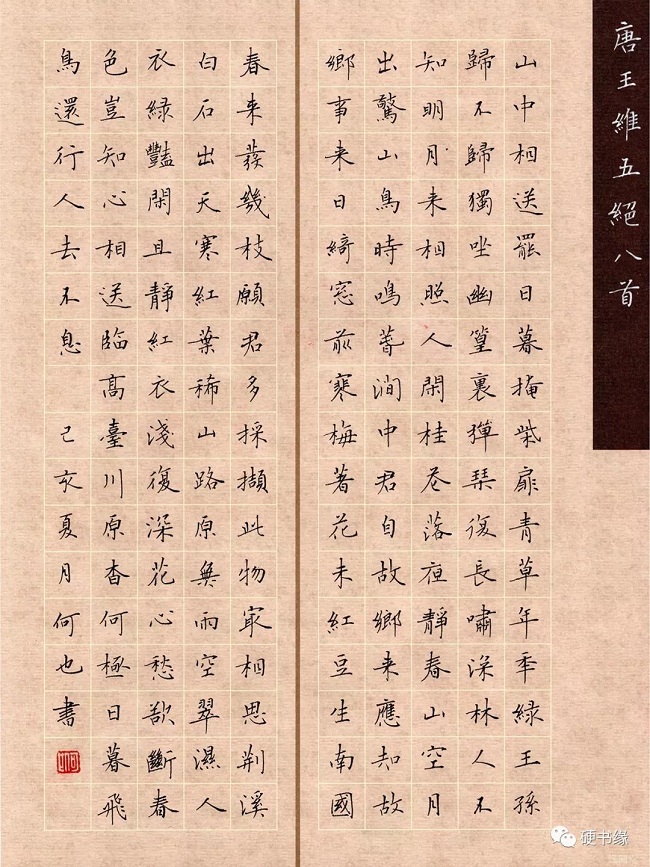 唐王維五絕八首
山中相送罷日暮掩柴扉青草年秊綠王孫
歸不歸獨坐幽篁裏彈琴復長嘯深林人不
知明月來相照人閑桂花落夜靜春山空月
出驚山鳥時鳴春澗中君自故鄉來應知故
鄉事來日綺窓前寒梅著花未紅豆生南國
春来發幾枝願君多採擷此物最相思荊溪
白石出天寒紅葉稀山路原無雨空翠濕人
衣綠豔閑且靜紅衣淺復深花心愁欲斷春
色豈知心相送臨髙臺川原杳何極日暮飛
鳥還行人去不息 己亥夏月何也書
硬书缘